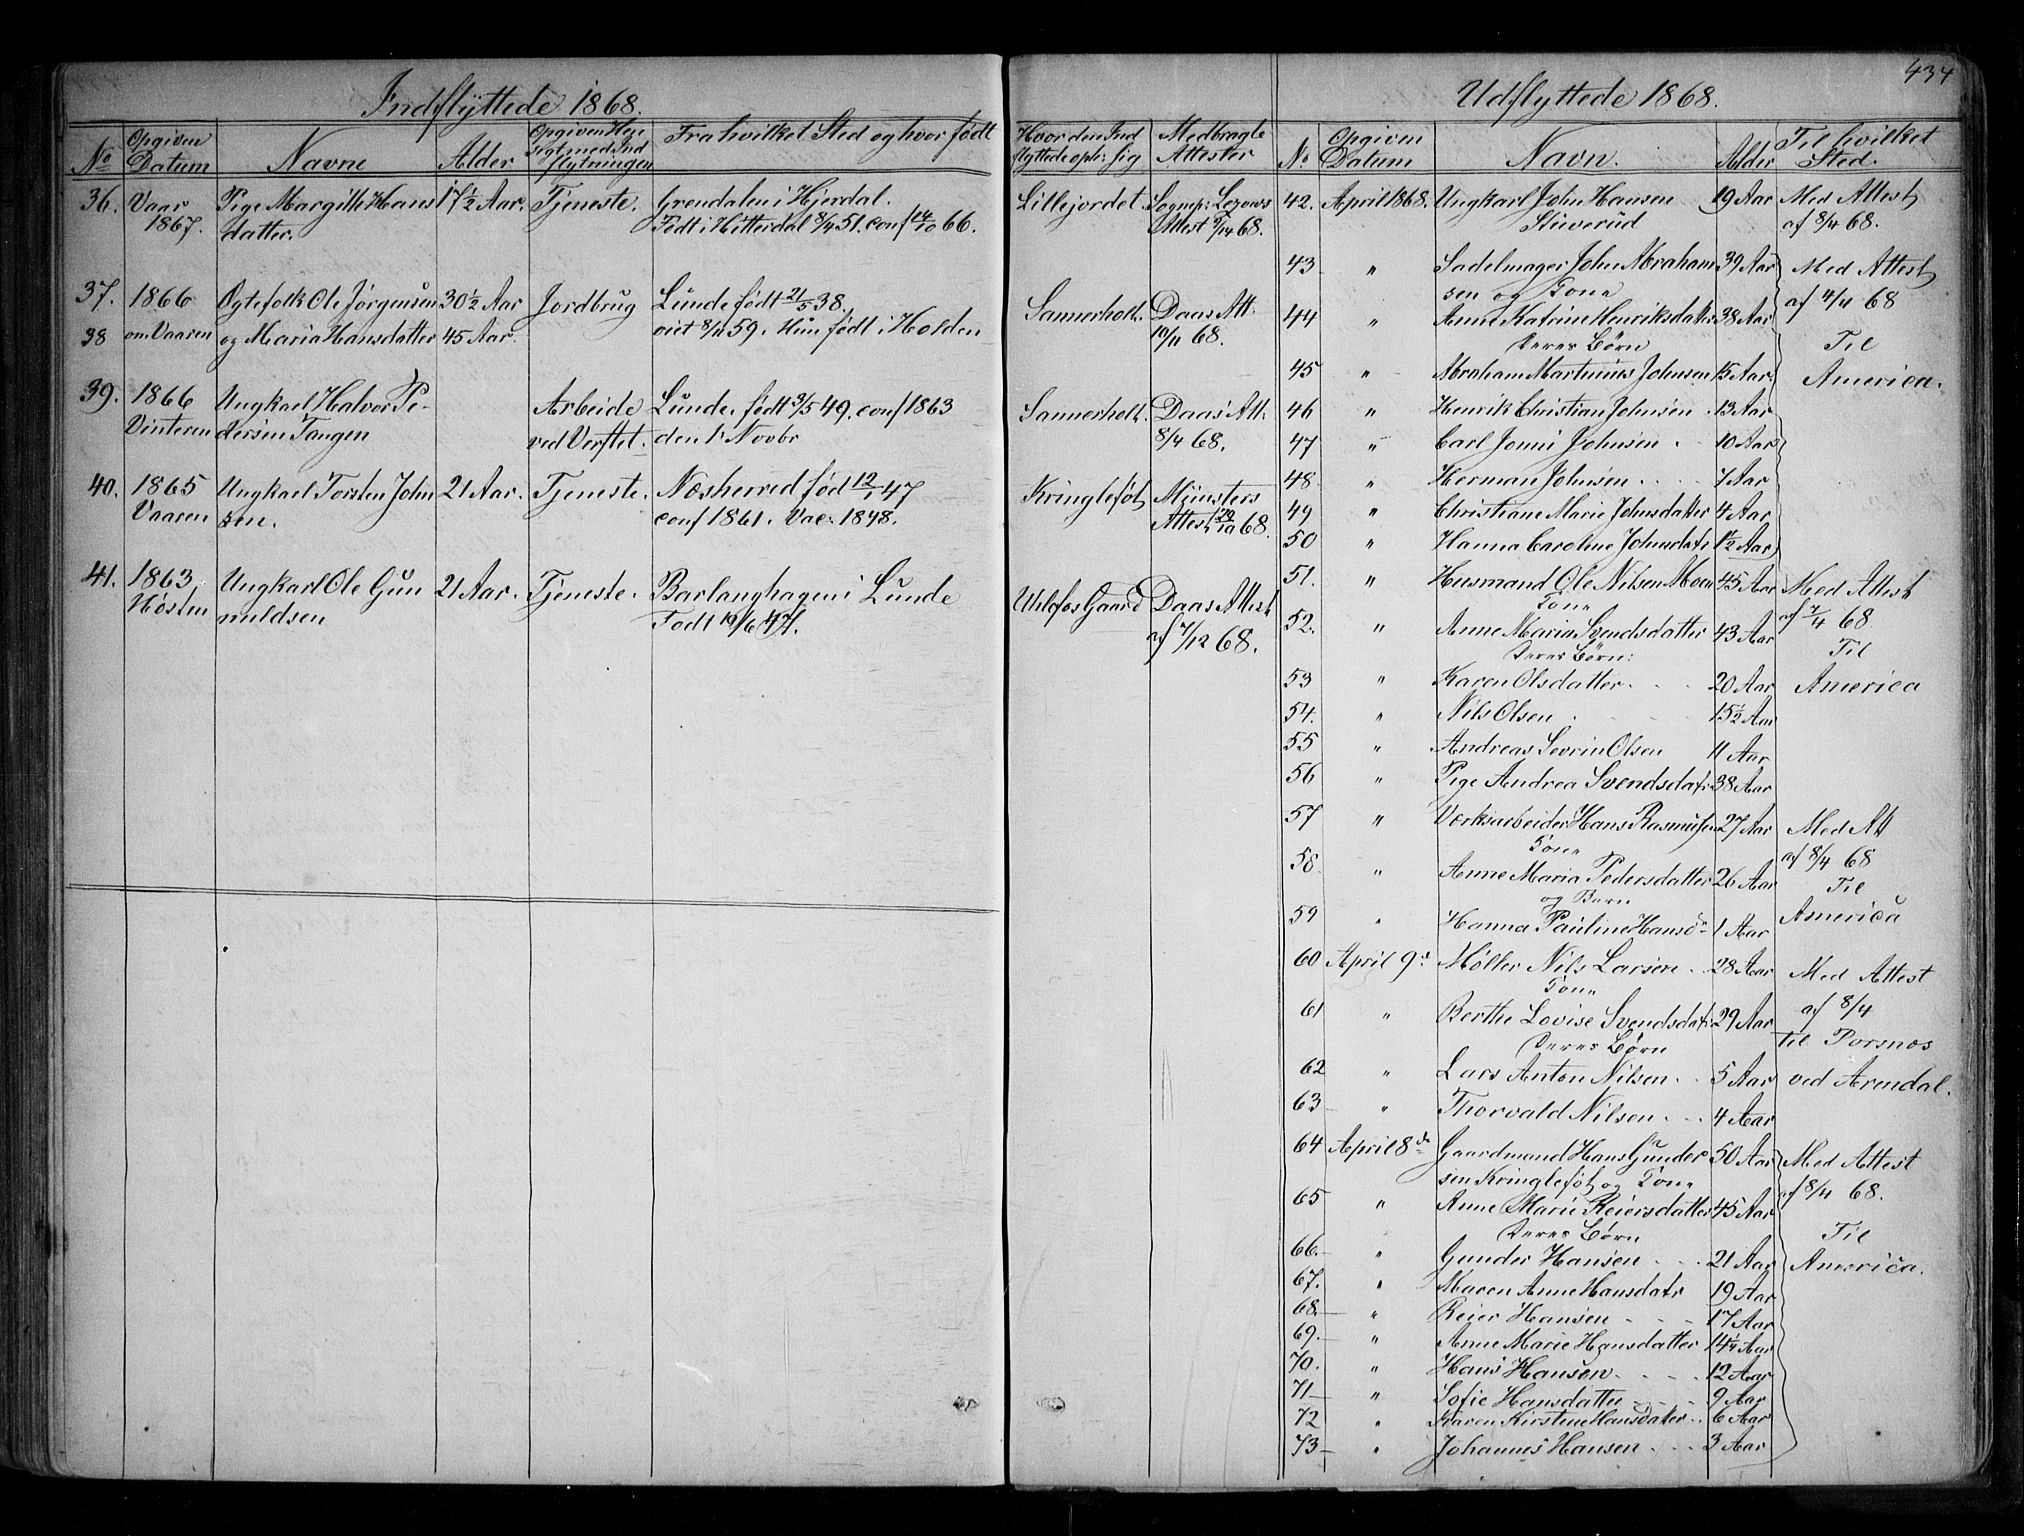 434
Indflyttede 1868.
No Opgiven Datum Navne Alder Opgiven Hensigt med Indflytningen Fra hvilket Sted og hvor født Hvor den Indflyttede oph: sig Medbragte Attester
36. Vaar 1867. Pige Margitte Hans 17 1/2 Aar. Tjeneste. Grendalen i Hjerdal. Lillejordet. Sognep: Attest 9/14 68.
datter. Født i Hitterdal 8/4 51. conf 14/10 66.
37. 1866 Egtefolk Ole Jørgensen 30 1/2 Aar Jordbrug Lunde født 21/5 38, Sannerholt. Daas Att.
38 om Vaaren og Maria Hansdatter 45 Aar. viet 8/11 59. Hun født i Holden 19/11 68.
39. 1866 Ungkarl Halvor Pe- Arbeide Lunde. født 3/5 49. conf 1863 Sannerholt. Daas Att:
Vinteren dersen Tangen ved Verftet. den 1 Novbr 8/4 68.
40. 1865 Ungkarl Torsten John 21 Aar. Tjeneste. Næsherred fød 12/1 47 Kringlefot Münsters
Vaaren sen. conf 1861. Vac. 1848. Attest 29/10 68.
41. 1863, Ungkarl Ole Gun 21 Aar. Tjeneste. Barlaughagen i Lunde Ulefos Gaard Daas Attest
Høsten nuldsen Født 19/6 47. af 7/12 68.
Udflyttede 1868.
No Opgiven Datum Navn. Alder Til hvilket Sted.
42. April 1868. Ungkarl John Hansen 19 Aar Med Attest
Stüverud af 8/4 68.
43 " Sadelmager John Abraham 39 Aar Med Attest
sen og Kone af 4/4 68
44 " Anne Katrine Henriksdatter 38 Aar
Deres Børn Til
45 " Abraham Martinius Johnsen 15 Aar America.
46 " Henrik Christian Johnsen. 13 Aar
47 " Carl Jonni Johnsen. 10 Aar
48 " Herman Johnsen. 7 Aar
49 " Christiane Marie Johnsdatter 4 Aar
50 " Hanna Caroline Johnsdatr 1 1/2 Aar
51. " Husmand Ole Nilsen Moen 45 Aar Med Attest
Kone af 7/4 68
52. " Anne Maria Svendsdatter 43 Aar
Deres Børn: Til
53 " Karen Olsdatter. 20 Aar America
54. " Nils Olsen 15 1/2 Aar
55 " Andreas Sevrin Olsen 11 Aar
56 " Pige Andrea Svendsdatr 38 Aar
57 " Værksarbeider Hans Rasmusen 27 Aar Med Att
Kone af 8/4 68
58 " Anne Maria Pedersdatter 26 Aar Til
og Barn
59 " Hanna Pauline Hansd- 1 Aar America
60 April 9d Møller Nils Larsen 28 Aar Med Attest
Kone af 8/4
61 " Berthe Lovise Svendsdatr 29 Aar til Porsnæs
Deres Børn
62 " Lars Anton Nilsen. 5 Aar ved Arendal.
63 " Thorvald Nilsen. 4 Aar
64 April 8de Gaardmand Hans Gunder 50 Aar Med Attest
sen Kringlefot og Kone af 8/4 68.
65 " Anne Marie Reiersdatter 45 Aar
Deres Børn Til
66. " Gunder Hansen 21 Aar America.
67. " Maren Anne Hansdatr 19 Aar
68. " Reier Hansen 17 Aar
69. " Anne Marie Hansdatter 14 1/2 Aar
70. " Hans Hansen. 12 Aar
71 " Sofie Hansdatter 9 Aar
72 " Karen Kirstine Hansdatter. 6 Aar
73 " Johannes Hansen. 3 Aar